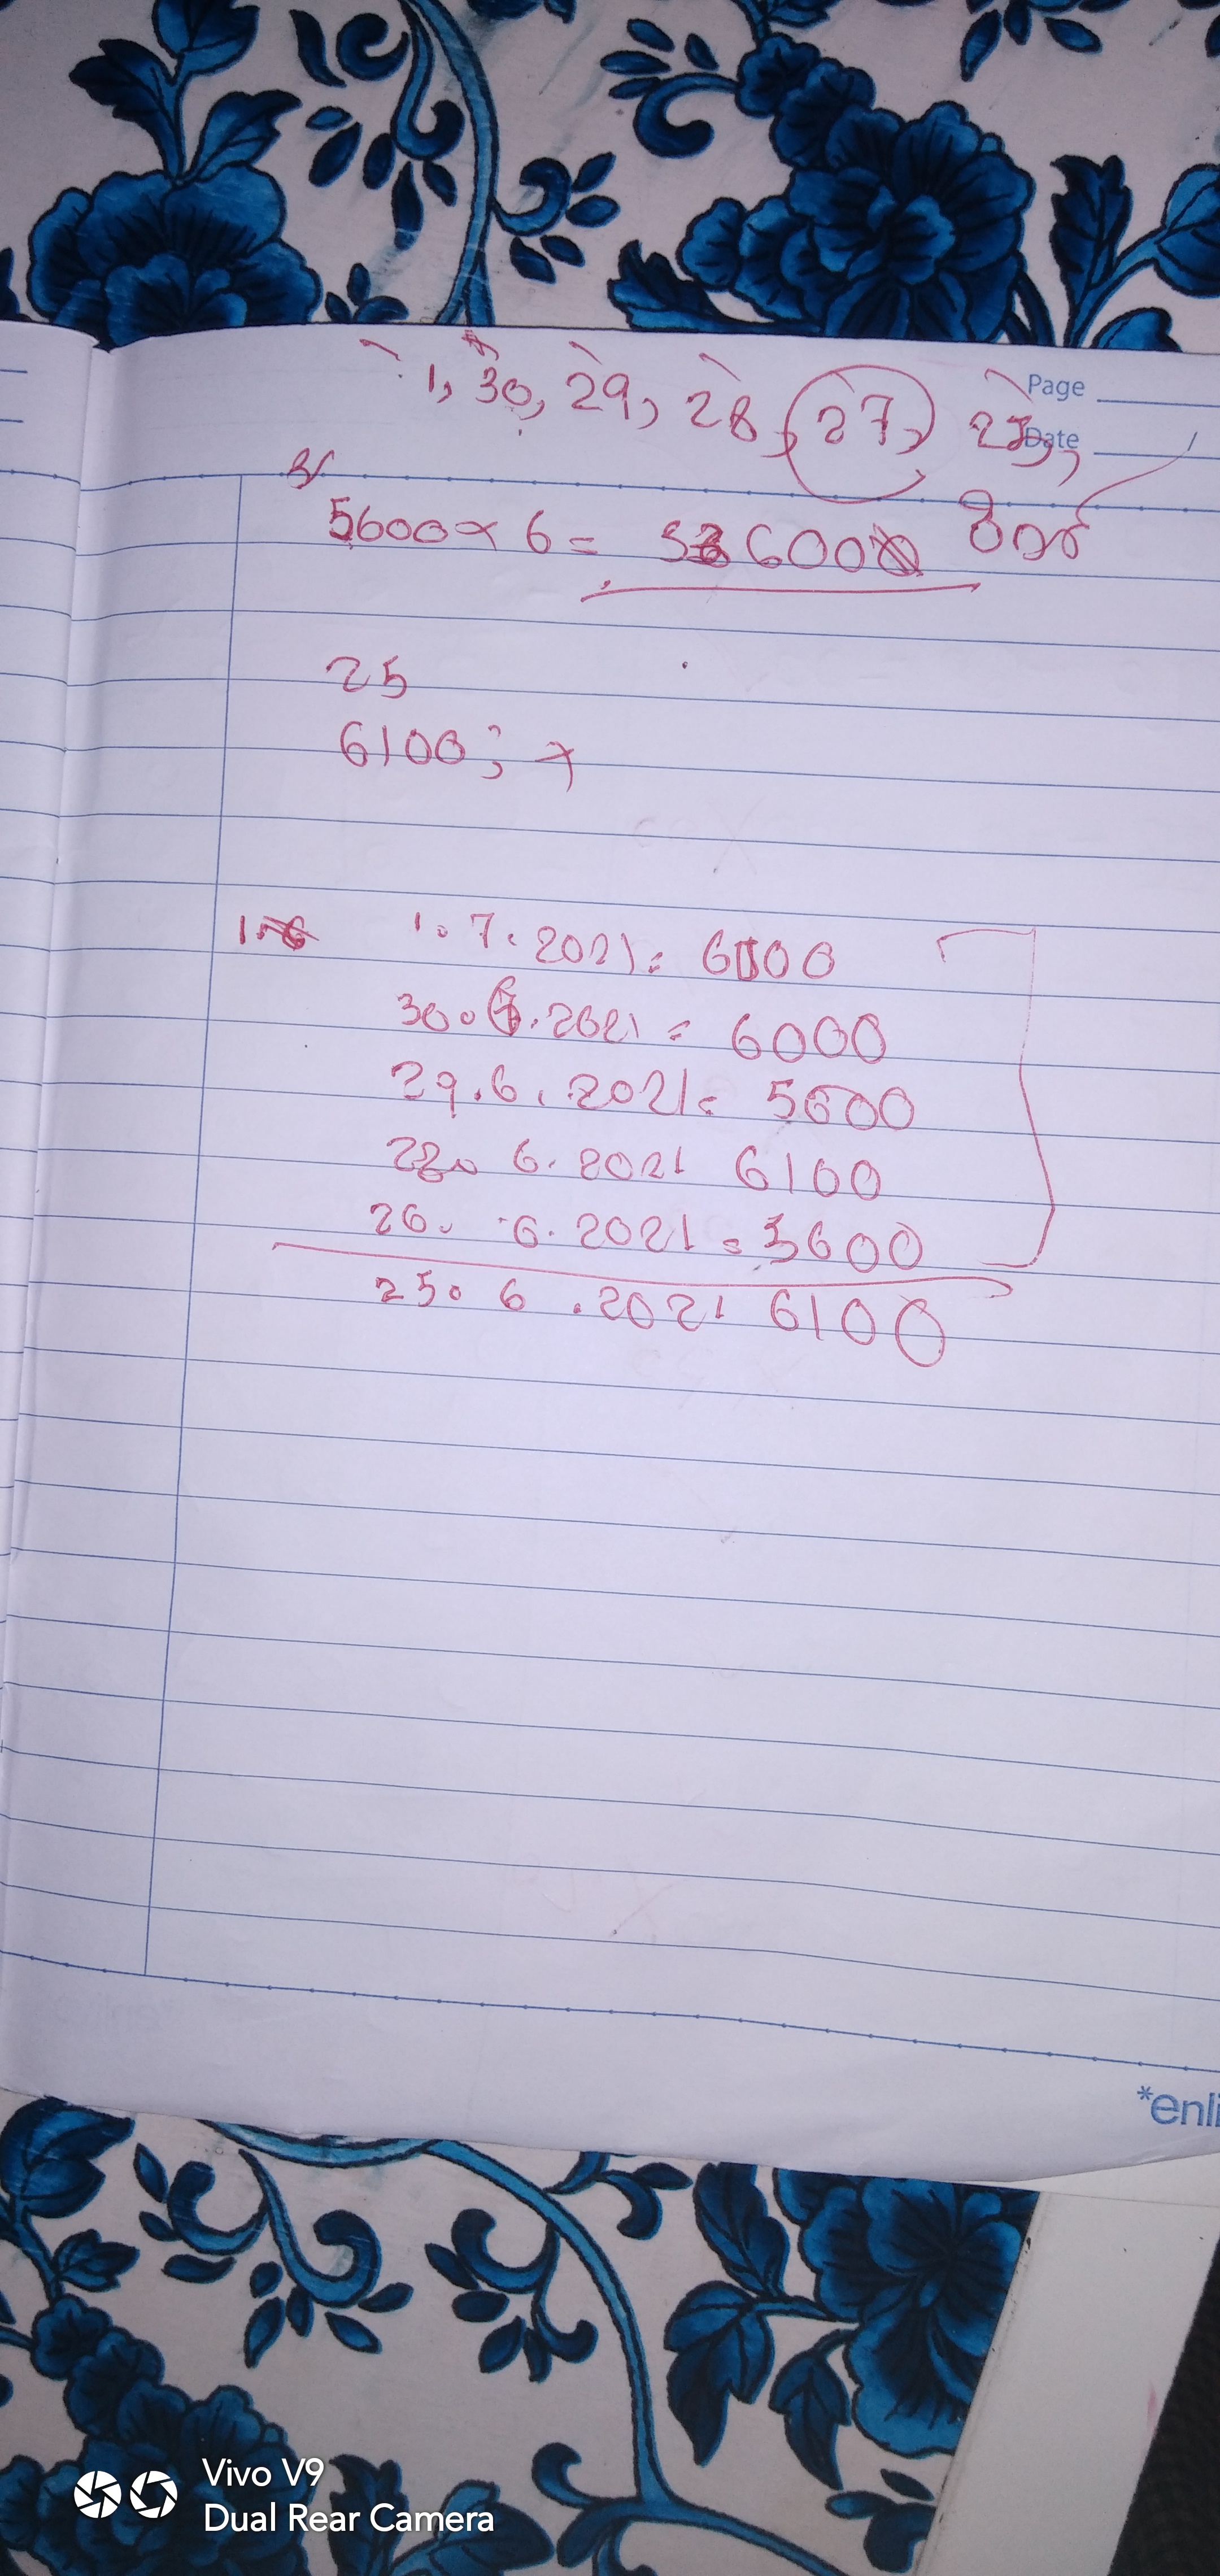 1, 30, 29, 28, 27, 25,
Page
Date
5600 × 6 = 33600
25
6100;
1.7.2021 = 6100
30.6.2021 = 6000
29.6.2021 = 5600
28.6.2021 6100
26.6.2021 = 5600
25.6.2021 6100
*enli
Vivo V9
Dual Rear Camera